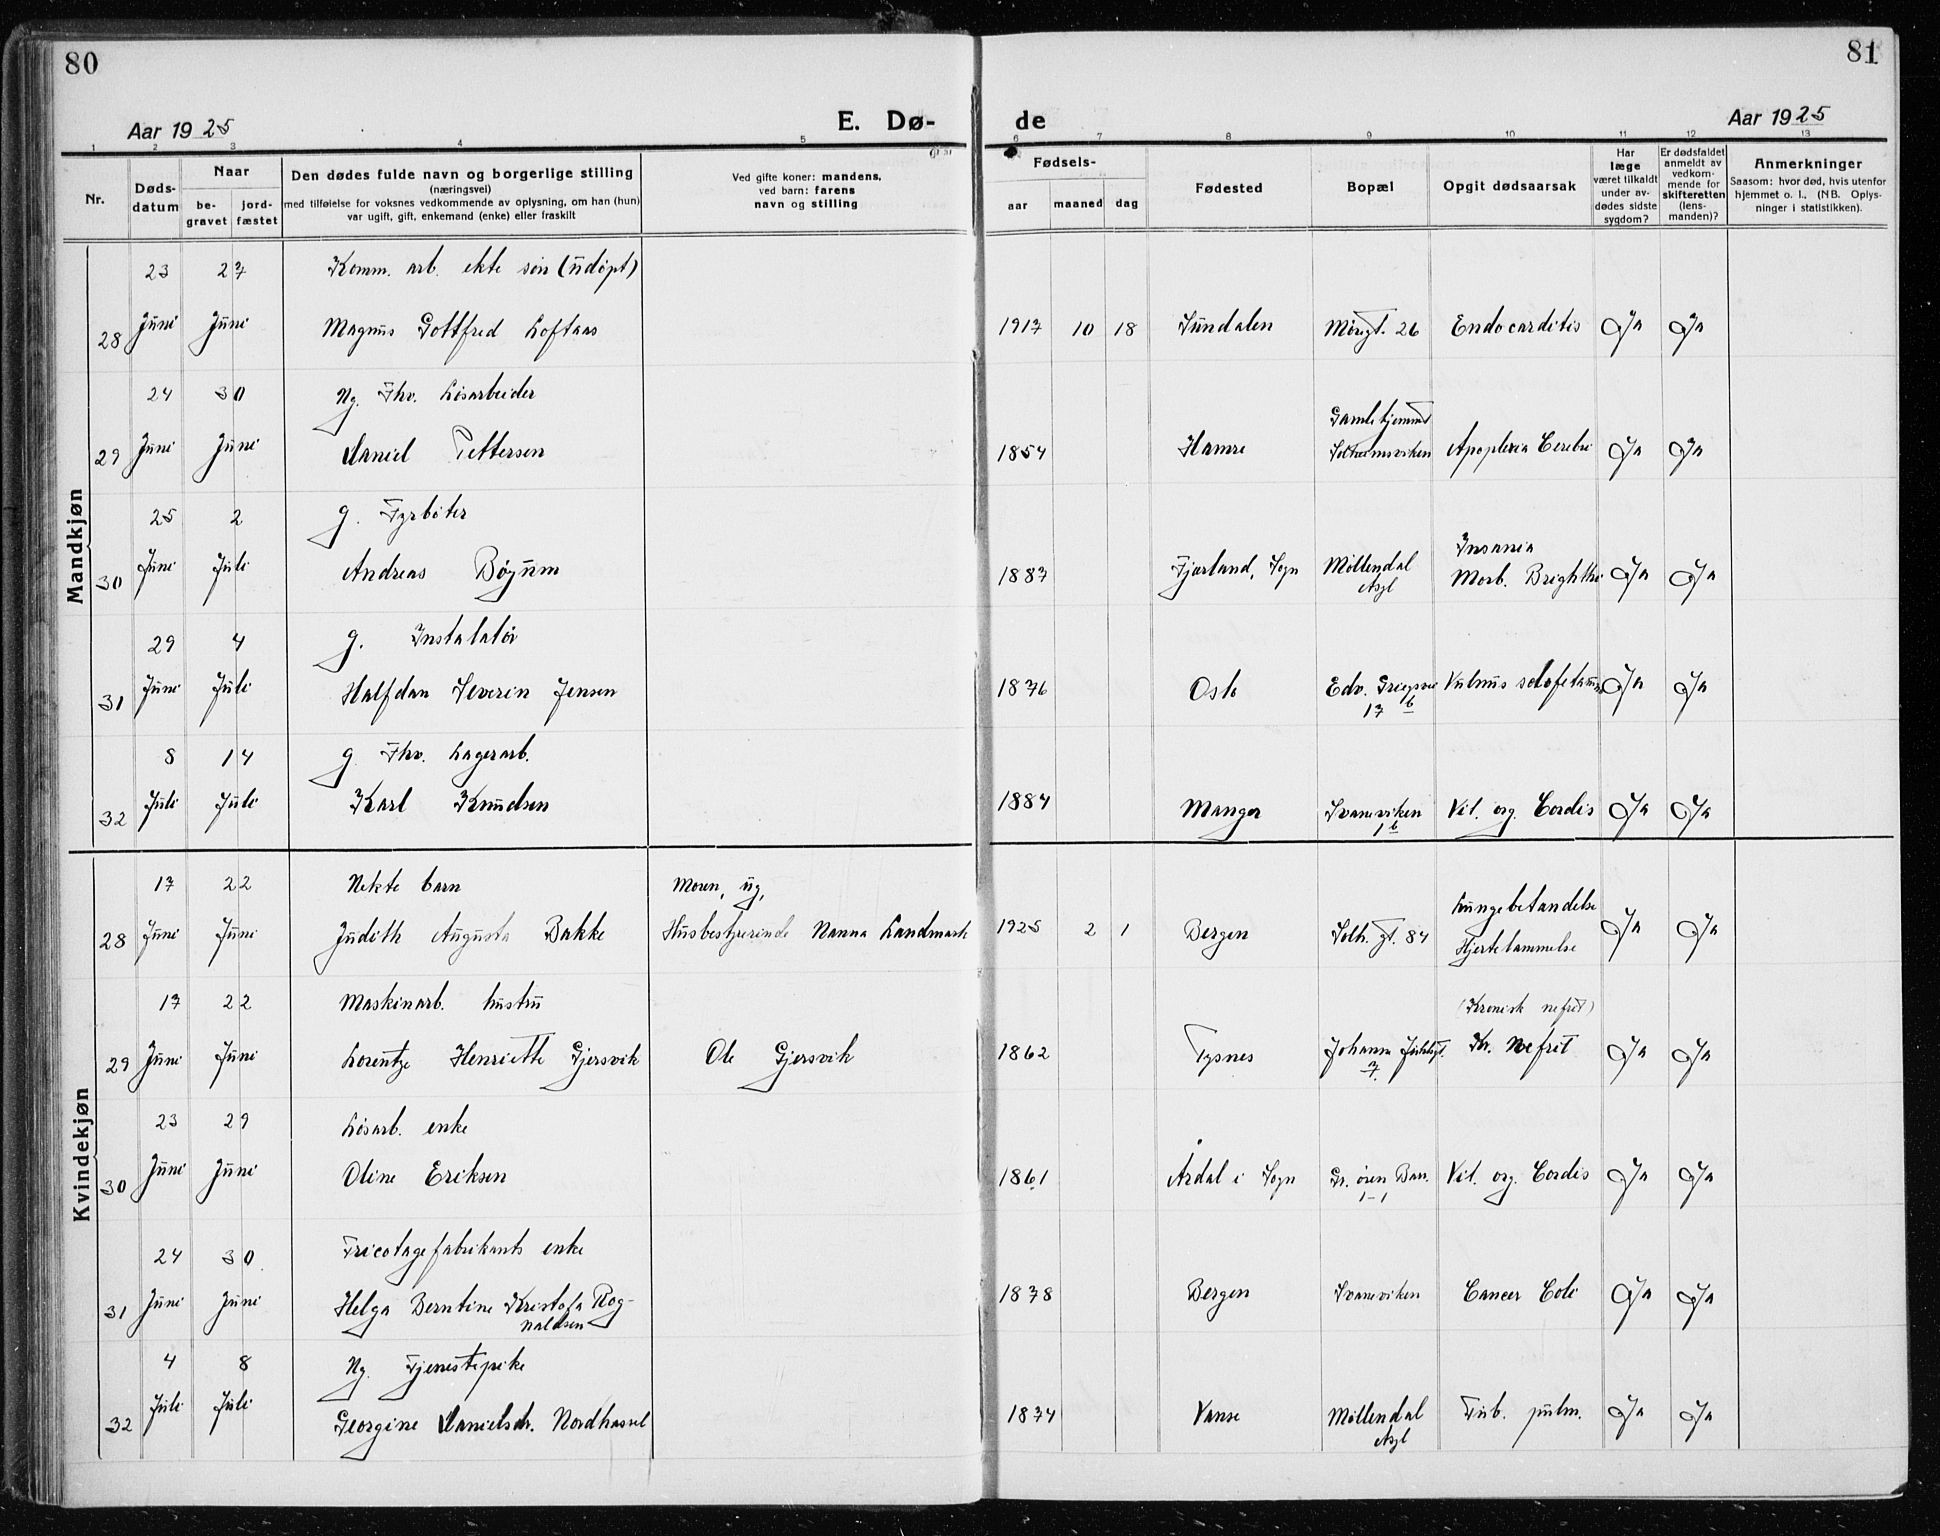 80
81
Aar 1925
E. Dø-
de
Aar 1925
1 2 3 4 5 6 7 8 9 10 11 12 13
Nr.
Døds-
datum
Naar
be-
gravet
jord-
fæstet
Den dødes fulde navn og borgerlige stilling
(næringsvei)
med tilføielse for voksnes vedkommende av oplysning, om han (hun)
var ugift, gift, enkemand (enke) eller fraskilt
Ved gifte koner: mandens,
ved barn: farens
navn og stilling
Fødsels-
aar maaned dag
Fødested
Bopæl
Opgit dødsaarsak
Har
læge
været tilkaldt
under av-
dødes sidste
sygdom?
Er dødsfaldet
anmeldt av
vedkom-
mende for
skifteretten
(lens-
manden)?
Anmerkninger
Saasom: hvor død, hvis utenfor
hjemmet o. l., (NB. Oplys-
ninger i statistikken).
Mandkjøn
23 27 Komm. arb. ekte søn (udøpt)
28 Juni Juni Magnus Gottfred Loftaas 1917 10 18 Sundalen 26 Endocarditis Ja Ja
24 30 Ug. Fhv. Løsarbeider
Gamlehjemmet
29 Juni Juni Daniel Pettersen 1854 Hamre Solheimsviken Apoplexia Cerebri Ja Ja
25 2 g. Fyrbøter
Insania
30 Juni Juli Andreas Bøyum 1887 Fjærland, Sogn Møllendal Morb. Brighthi Ja Ja
Asyl
29 4 g. Instalatør
31 Juni Juli Halfdan Severin Jensen 1876 Oslo Edv. Griegsvei Vulnus Ja Ja
17 b
8 14 g. Fhv. Lagerarb.
32 Juli Juli Karl Knudsen 1884 Manger Svaneviken Vit. org. Cordis Ja Ja
1 b
Kvindekjøn
17 22 Uekte barn Moren, ug,
Lungebetændelse
28 Juni Juni Judith Augusta Bakke Husbestyrerinde Nanna Landmark 1925 2 1 Bergen Solh. gt. 84 Ja Ja
Hjertelammelse
17 22 Maskinarb. hustru (Kronisk nefrit)
29 Juni Juni Lorentze Henriette Gjersvik Ole Gjersvik 1862 Tysnes Kr. Nefrit Ja Ja
7.
23 29 Løsarb. enke
30 Juni Juni Oline Eriksen 1861 Årdal i Sogn Vit. org. Cordis Ja Ja
1-1
24 30 Tricotagefabrikants enke
31 Juni Juni Helga Berntine Kristofa Rog- 1838 Bergen Svaneviken Cancer Coli Ja Ja
naldsen
4 8 Ug. Tjenestepike
32 Juli Juli Georgine Danielsdr. Nordhassel 1874 Vanse Møllendal Tub. pulm. Ja Ja
Asyl